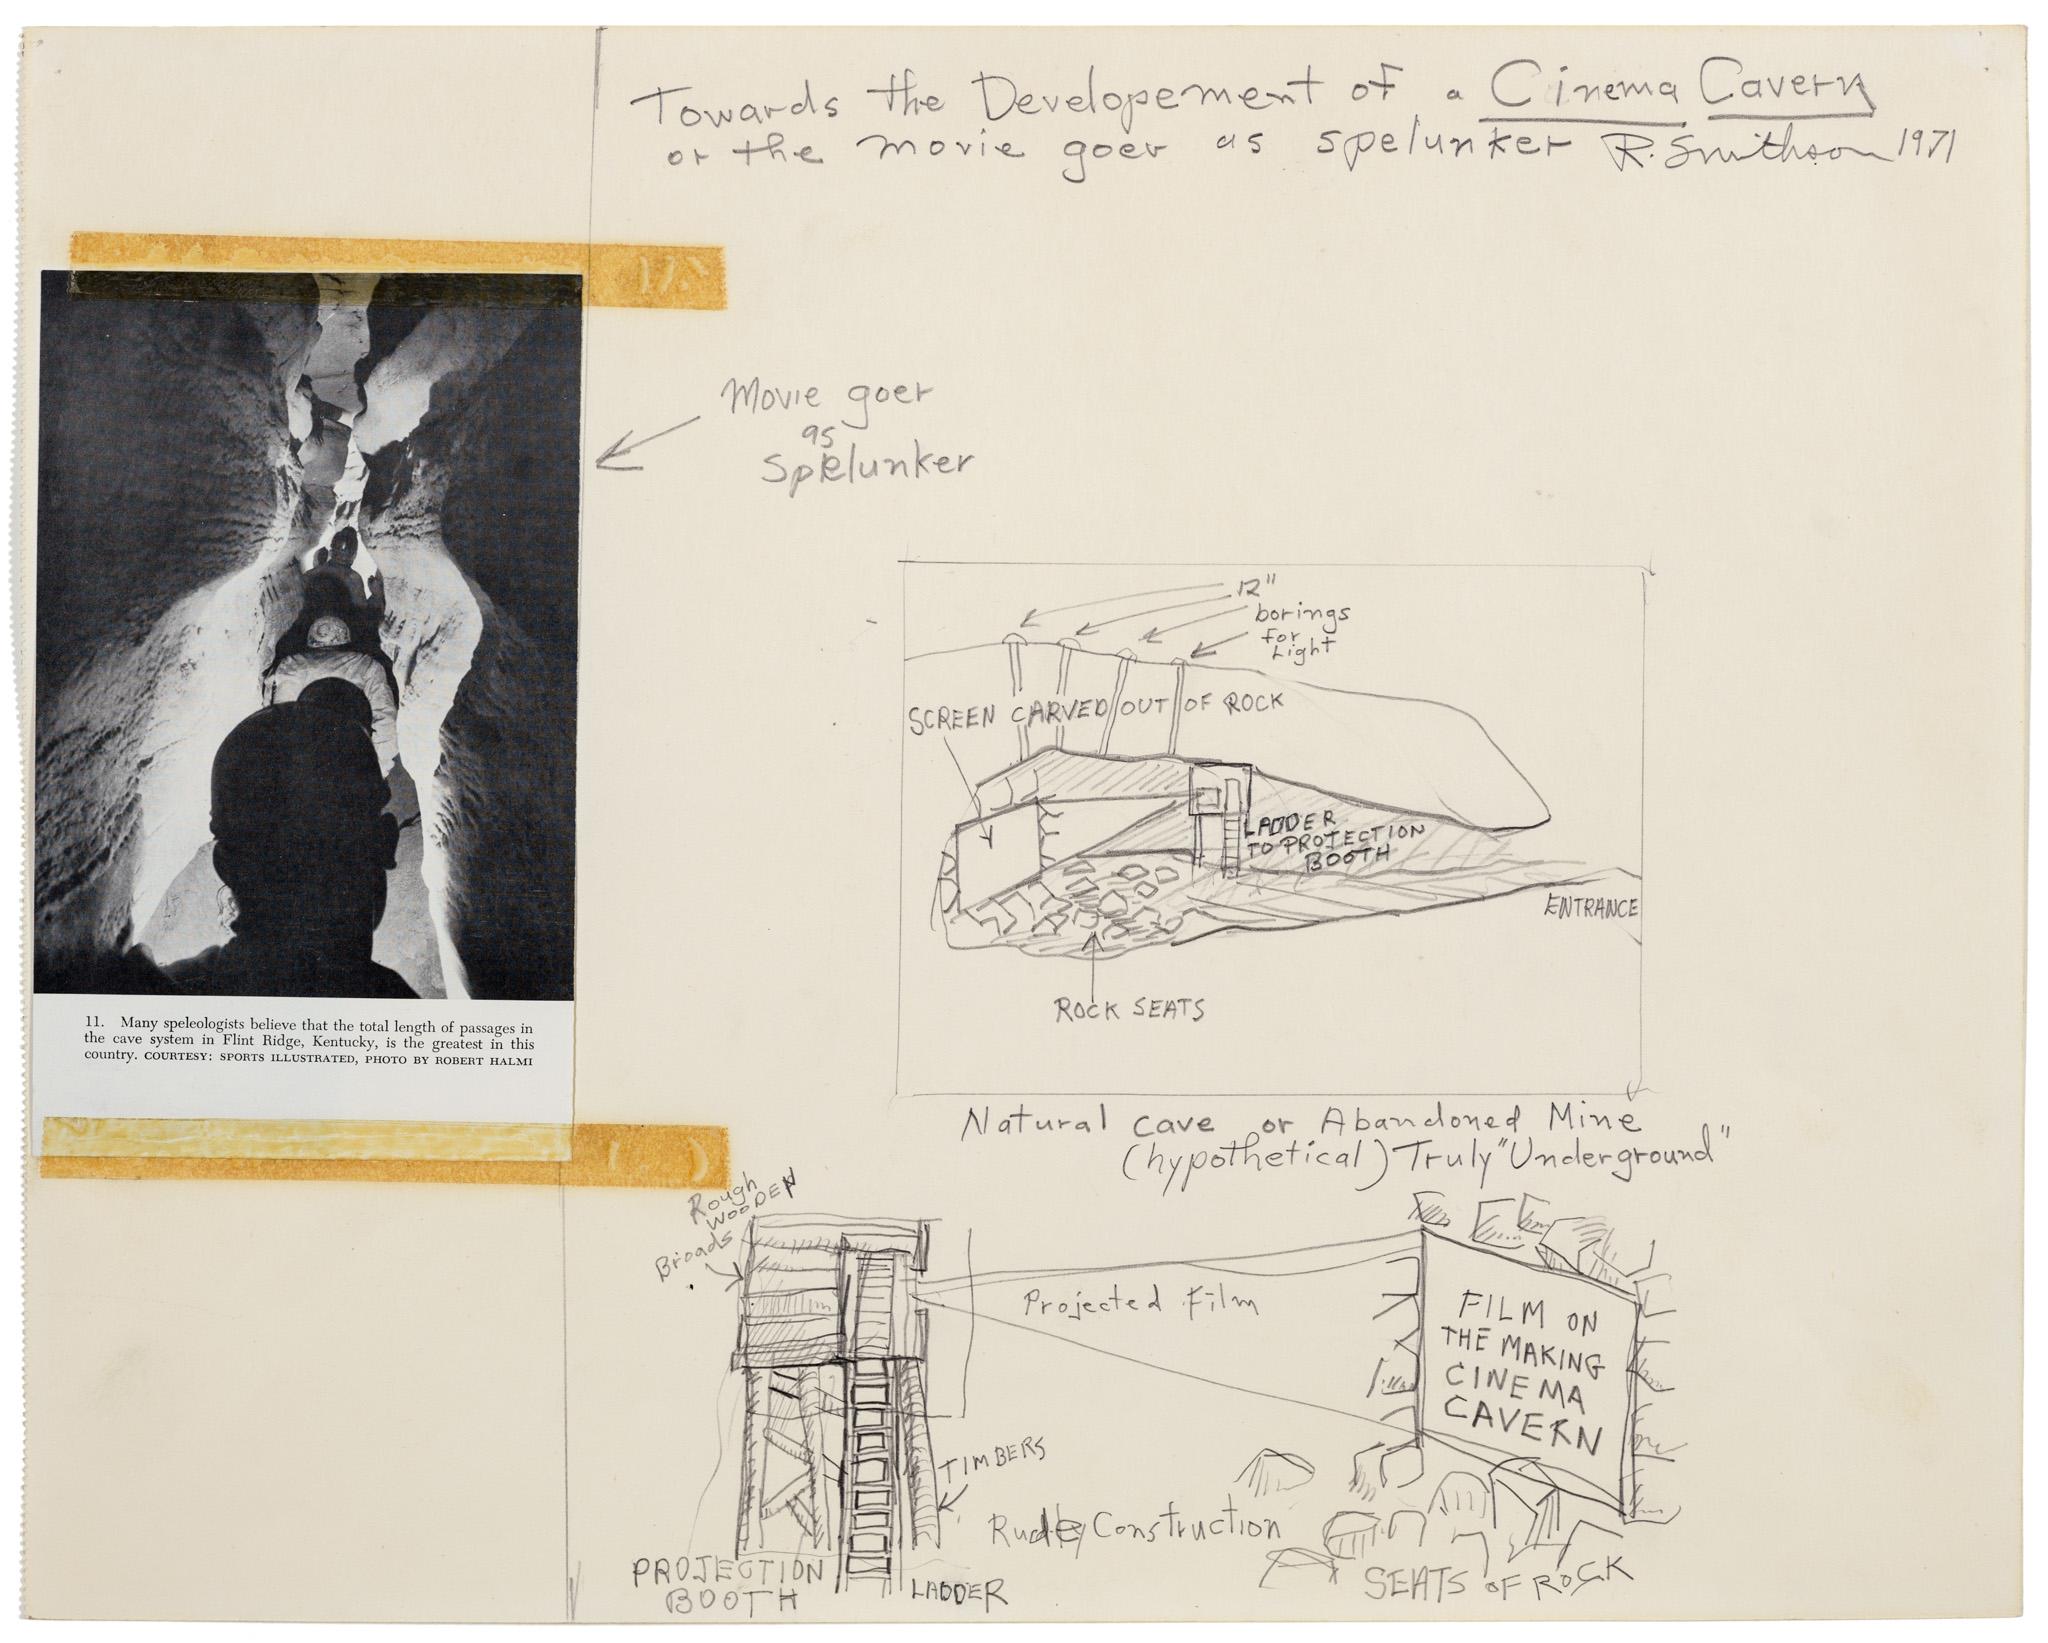 Towards the Developement of a Cinema Cavern
or the movie goer as spelunker R. Smithson 1971
Movie goer
as
Spelunker
11. Many speleologists believe that the total length of passages in
the cave system in Flint Ridge, Kentucky, is the greatest in this
country. COURTESY: SPORTS ILLUSTRATED, PHOTO BY ROBERT HALMI
12"
borings
for
Light
SCREEN CARVED OUT OF ROCK
LADDER
TO PROJECTION
BOOTH
ENTRANCE
ROCK SEATS
Natural cave or Abandoned Mine
(hypothetical) Truly "Underground"
Rough
WOODEN
Broads
Projected Film
FILM ON
THE MAKING
CINEMA
CAVERN
TIMBERS
Construction
PROJECTION
BOOTH
LADDER
SEATS OF ROCK